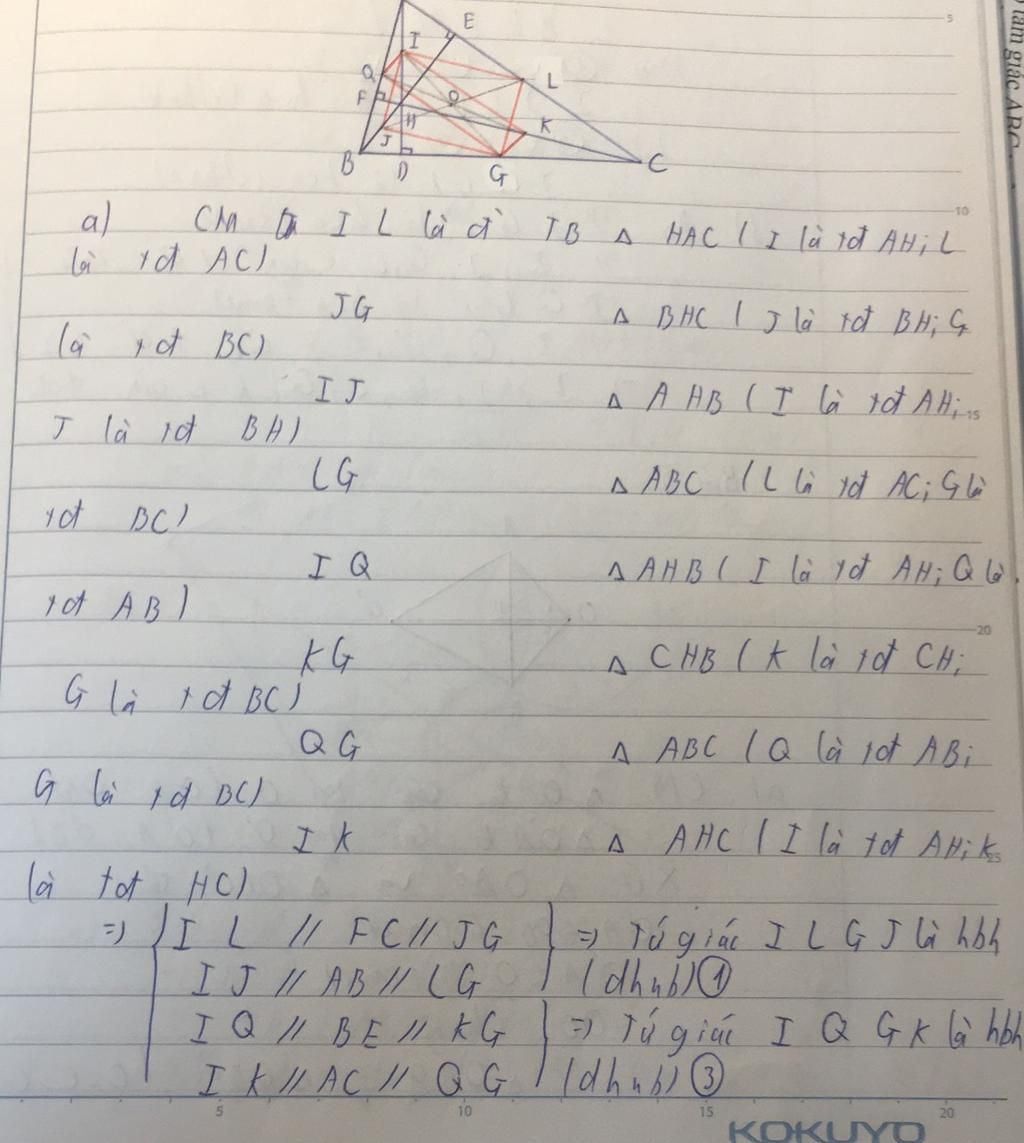 E
I
Q
L
F
O
H
K
J
B
D
G
C
5
tam giác ABC.
10
a) CM IL là đ' TB Δ HAC ( I là tđ AH; L
là tđ AC)
JG Δ BHC ( J là tđ BH; G
là tđ BC)
IJ Δ AHB ( I là tđ AH;
15
J là tđ BH)
LG Δ ABC (L là tđ AC; G là
tđ BC)
IQ Δ AHB ( I là tđ AH; Q là
tđ AB)
20
KG Δ CHB ( K là tđ CH;
G là tđ BC)
QG Δ ABC ( Q là tđ AB;
G là tđ BC)
IK Δ AHC ( I là tđ AH; K
25
là tđ HC)
=> { IL // FC // JG } => Tứ giác ILGJ là hbh
IJ // AB // LG (dhnb) ①
IQ // BE // KG } => Tứ giác IQGK là hbh
IK // AC // QG (dhnb) ③
5 10 15 20
KOKUYO